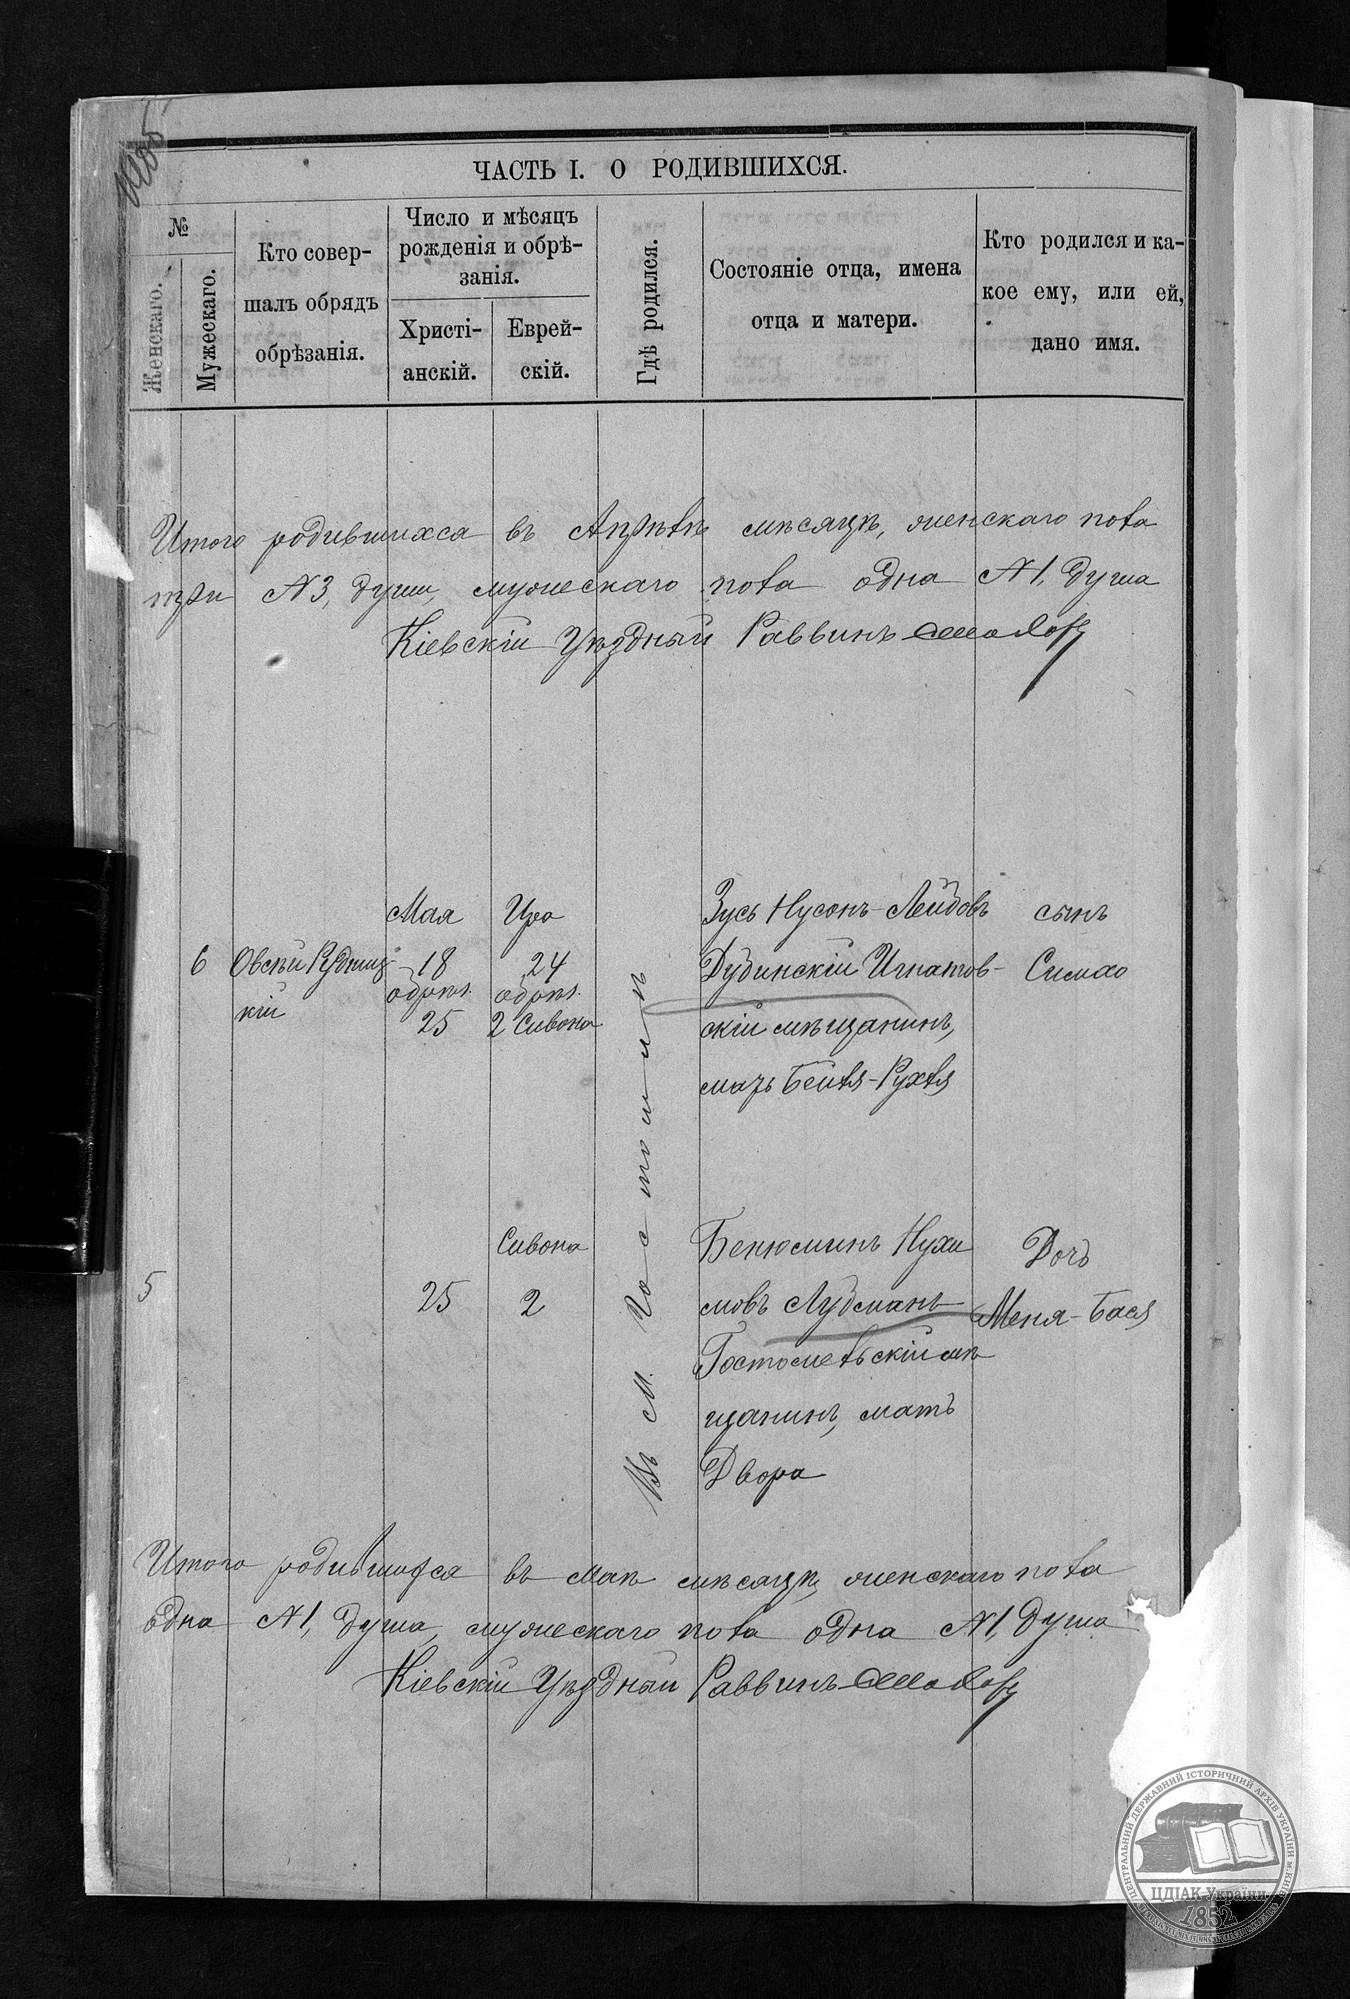 ЧАСТЬ I. О РОДИВШИХСЯ.
№
Женскаго.
Мужескаго.
Кто совер-
шалъ обрядъ
обрѣзанія.
Число и мѣсяцъ
рожденія и обрѣ-
занія.
Христі-
анскій.
Еврей-
скій.
Гдѣ родился.
Состояніе отца, имена
отца и матери.
Кто родился и ка-
кое ему, или ей,
дано имя.
Итого родившихся въ Апрѣлѣ мѣсяцѣ, женскаго пола
три №3, души, мужескаго пола одна №1, душа
Кіевскій Уѣздный Раввинъ
Мая Ира Зусь Нусонъ-Лейбовъ сынъ
6 Овсѣй Рудниц- 18 24 Дубинскій Игнатов- Симхо
кій обрѣз. обрѣз. скій мѣщанинъ,
25 2 Сивона
мать Бейля-Рухля
Въ М. Гостомлѣ
Сивона Бенюминъ Нухи Дочь
5 25 2 мовъ Лудманъ Меня-Бася
Гостомельскій мѣ
щанинъ, мать
Двора
Итого родившихся въ маѣ мѣсяцѣ, женскаго пола
одна №1, душа, мужескаго пола одна №1, душа
Кіевскій Уѣздный Раввинъ
ЦЕНТРАЛЬНИЙ ДЕРЖАВНИЙ ІСТОРИЧНИЙ АРХІВ УКРАЇНИ М. КИЇВ
ЦДІАК України
1852